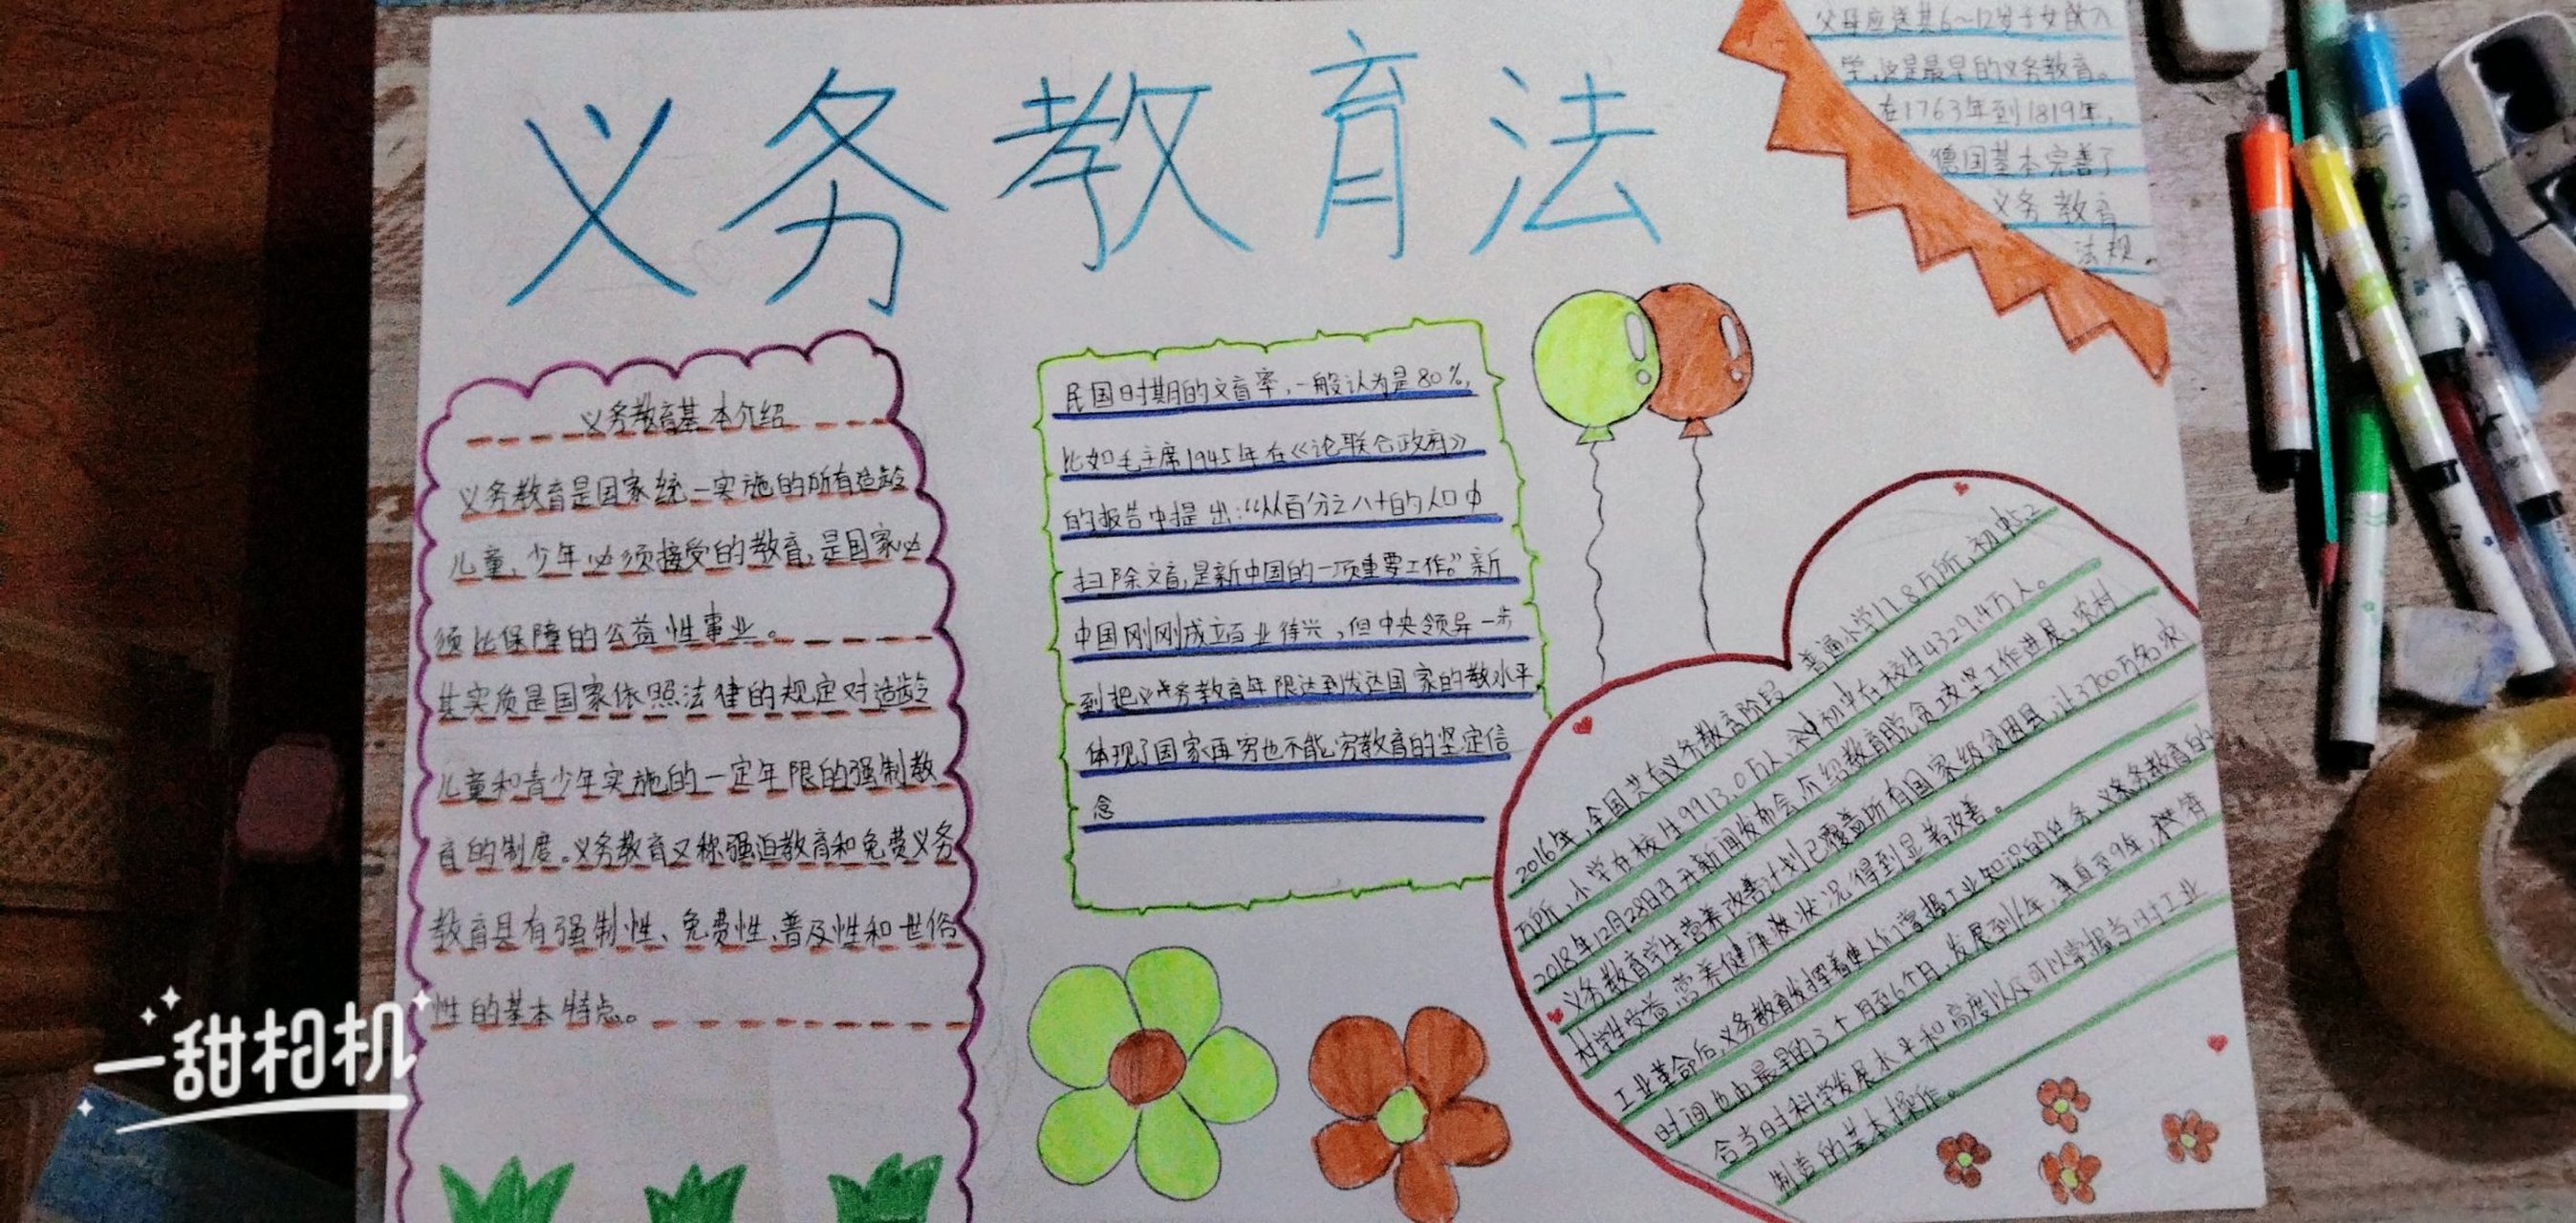 义务教育法
父母应送其6~12岁子女入
学,这是最早的义务教育。
在1763年到1819年,
德国基本完善了
义务教育
法规。
义务教育基本介绍
义务教育是国家统一实施的所有适龄
儿童,少年必须接受的教育,是国家必
须比保障的公益性事业。
其实质是国家依照法律的规定对适龄
儿童和青少年实施的一定年限的强制教
育的制度。义务教育又称强迫教育和免费义务
教育具有强制性、免费性、普及性和世俗
性的基本特点。
民国时期的文盲率,一般认为是80%,
比如毛主席1945年在《论联合政府》
的报告中提出:“从百分之八十的人口中
扫除文盲,是新中国的一项重要工作。”新
中国刚刚成立百业待兴,但中央领导一步
到把义务教育年限达到发达国家的教水平
体现了国家再穷也不能穷教育的坚定信
念
2016年,全国共有义务教育阶段普通小学17.8万所,初中5.2
万所,小学在校生9913.0万人,初中在校生4329.4万人。
2018年12月28日召开新闻发布会介绍教育脱贫攻坚工作进展,农村
义务教育学生营养改善计划已覆盖所有国家级贫困县,让3700万名农
村学生受益,营养健康状况得到显著改善。
工业革命后,义务教育发挥着使人们掌握工业知识的任务,义务教育的
时间也由最早的3个月至6个月,发展到6年,直至9年,符
合当时科学发展水平和高度以及可以掌握当时工业
制造的基本操作。
一甜相机